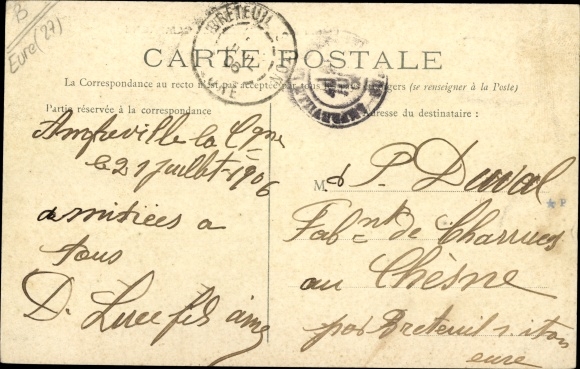 B
Eure (27)
BRETEUIL
CARTE POSTALE
La Correspondance au recto n'est pas acceptée par tous les pays étrangers (se renseigner à la Poste)
Partie réservée à la correspondance
Adresse du destinataire :
Amfreville la Cgne
le 21 juillet 1906
amitiées a
tous
D. Luce fils ainé
M. P. Duval
Fabnt de Charrues
au Chesne
par Breteuil s. iton
eure